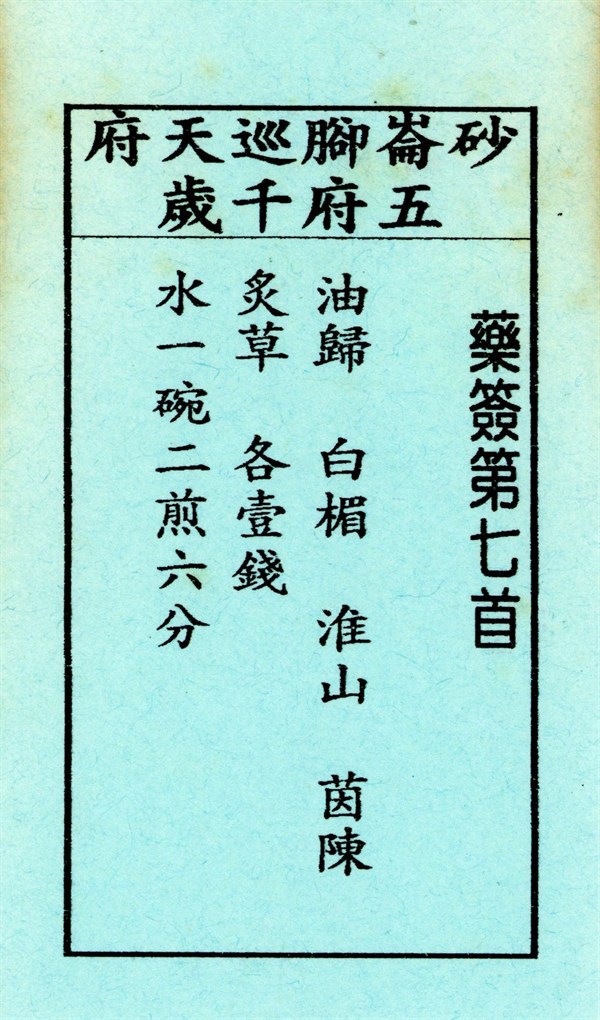 砂崙腳巡天府
五府千歲
藥簽第七首
油歸 白楣 淮山 茵陳
炙草 各壹錢
水一碗二煎六分